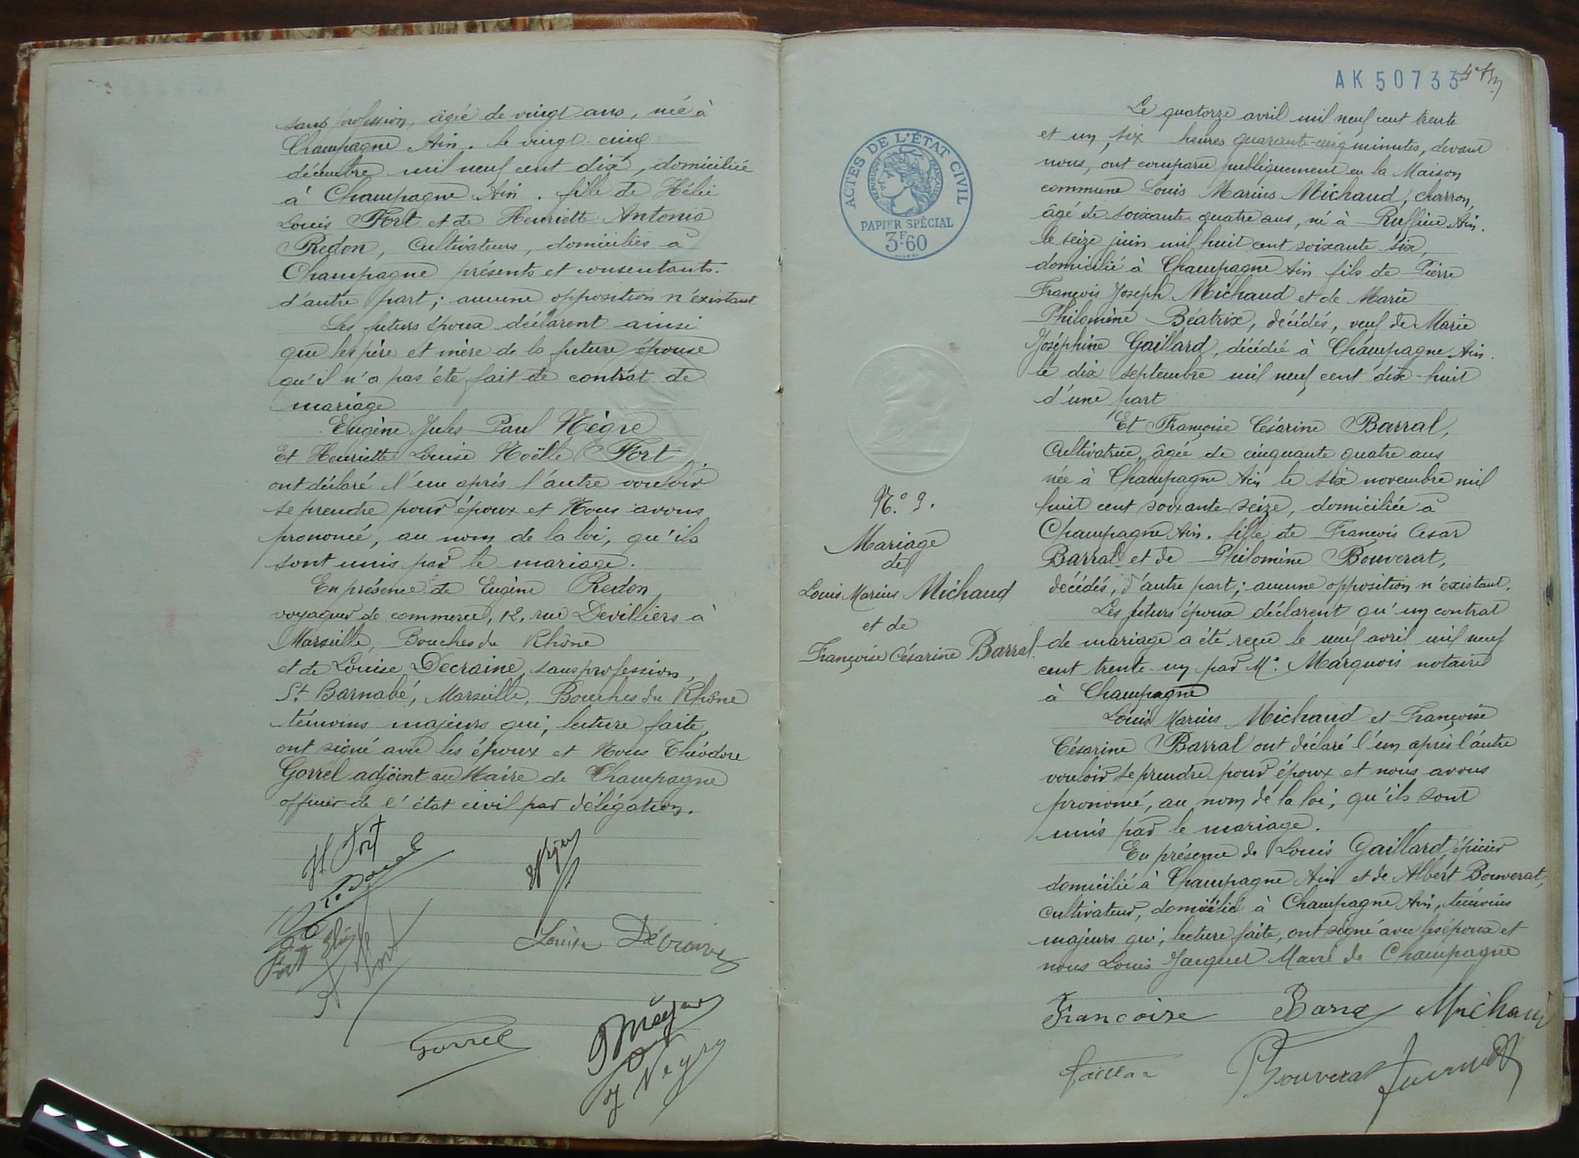 sans profession, âgée de vingt ans, née à
Champagne Ain. le vingt cinq
décembre mil neuf cent dix, domiciliée
à Champagne Ain. fille de Hélie
Louis Fort et de Henriette Antonia
Redon, Cultivateurs, domiciliés à
Champagne présents et consentants.
d'autre part; aucune opposition n'existant
Les futurs époux déclarent ainsi
que les père et mère de la future épouse
qu'il n'a pas été fait de contrat de
mariage
Eugène Jules Paul Nègre
Et Henriette Louise Noëlle Fort
ont déclaré l'un après l'autre vouloir
se prendre pour époux et Nous avons
prononcé, au nom de la loi, qu'ils
sont unis par le mariage.
En présence de Eugène Redon
voyageur de commerce, 12, rue Devilliers à
Marseille, Bouches du Rhône
et de Louise Decraine, sans profession,
St Barnabé, Marseille, Bouches du Rhône
témoins majeurs qui, lecture faite,
ont signé avec les époux et Nous Théodore
Gorrel adjoint au Maire de Champagne
officier de l'état civil par délégation.
H Fort
Louise Décraine
Gorrel
AK 50733
ACTES DE L'ÉTAT CIVIL
RÉPUBLIQUE FRANÇAISE
PAPIER SPÉCIAL
3F60
N.° 9.
Mariage
de
Louis Marius Michaud
et de
Françoise Césarine Barral.
Le quatorze avril mil neuf cent trente
et un, six heures quarante-cinq minutes, devant
nous, ont comparu publiquement en la Maison
commune Louis Marius Michaud, charron,
âgé de soixante quatre ans, né à Ruffieu Ain.
le seize juin mil huit cent soixante six,
domicilié à Champagne Ain fils de Pierre
François Joseph Michaud et de Marie
Philomène Béatrix, décédés, veuf de Marie
Joséphine Gaillard, décédée à Champagne Ain.
le dix septembre mil neuf cent dix-huit
d'une part
Et Françoise Césarine Barral,
Cultivatrice, âgée de cinquante quatre ans
née à Champagne Ain le six novembre mil
huit cent soixante seize, domiciliée à
Champagne Ain. fille de François César
Barral et de Philomène Bouverat,
décédés, d'autre part; aucune opposition n'existant.
Les futurs époux déclarent qu'un contrat
de mariage a été reçu le neuf avril mil neuf
cent trente-un par Me. Marquois notaire
à Champagne
Louis Marius Michaud et Françoise
Césarine Barral ont déclaré l'un après l'autre
vouloir se prendre pour époux et nous avons
prononcé, au nom de la loi, qu'ils sont
unis par le mariage.
En présence de Louis Gaillard, épicier
domicilié à Champagne Ain et de Albert Bouverat,
cultivateur, domicilié à Champagne Ain, témoins
majeurs qui, lecture faite, ont signé avec les époux et
nous Louis Jacquet Maire de Champagne
Françoise Barral Michaud
Gaillard Bouverat